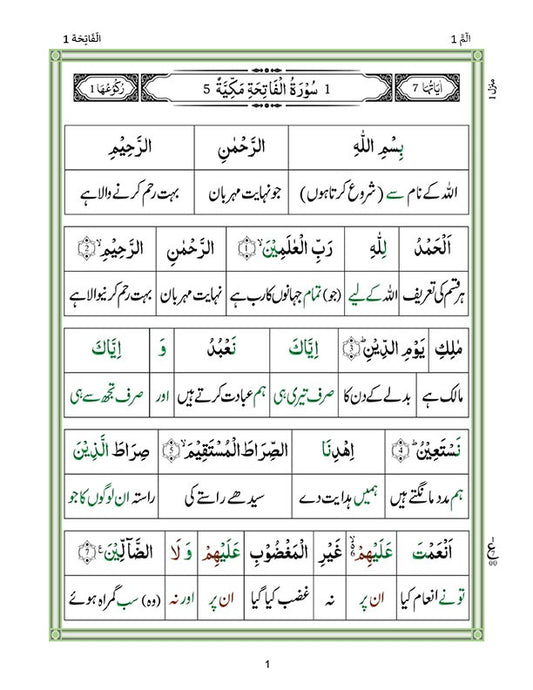 الٓمّٓ 1 الْفَاتِحَة 1
اٰيَاتُهَا 7 1 سُوْرَةُ الْفَاتِحَةِ مَكِّيَّةٌ 5 رُكُوْعُهَا 1
منزل 1
بِسْمِ اللّٰهِ الرَّحْمٰنِ الرَّحِيْمِ
اللہ کے نام سے (شروع کرتا ہوں) جو نہایت مہربان بہت رحم کرنے والا ہے
اَلْحَمْدُ لِلّٰهِ رَبِّ الْعٰلَمِيْنَ ۙ 1 الرَّحْمٰنِ الرَّحِيْمِ ۙ 2
ہر قسم کی تعریف اللہ کے لیے (جو) تمام جہانوں کا رب ہے نہایت مہربان بہت رحم کرنیوالا ہے
مٰلِكِ يَوْمِ الدِّيْنِ ؕ 3 اِيَّاكَ نَعْبُدُ وَ اِيَّاكَ
مالک ہے بدلے کے دن کا صرف تیری ہی ہم عبادت کرتے ہیں اور صرف تجھ سے ہی
نَسْتَعِيْنُ ؕ 4 اِهْدِنَا الصِّرَاطَ الْمُسْتَقِيْمَ ۙ 5 صِرَاطَ الَّذِيْنَ
ہم مدد مانگتے ہیں ہمیں ہدایت دے سیدھے راستے کی راستہ ان لوگوں کا جو
اَنْعَمْتَ عَلَيْهِمْ ۙ 6 غَيْرِ الْمَغْضُوْبِ عَلَيْهِمْ وَ لَا الضَّآلِّيْنَ 7
تو نے انعام کیا ان پر نہ غضب کیا گیا ان پر اور نہ (وہ) سب گمراہ ہوئے
1